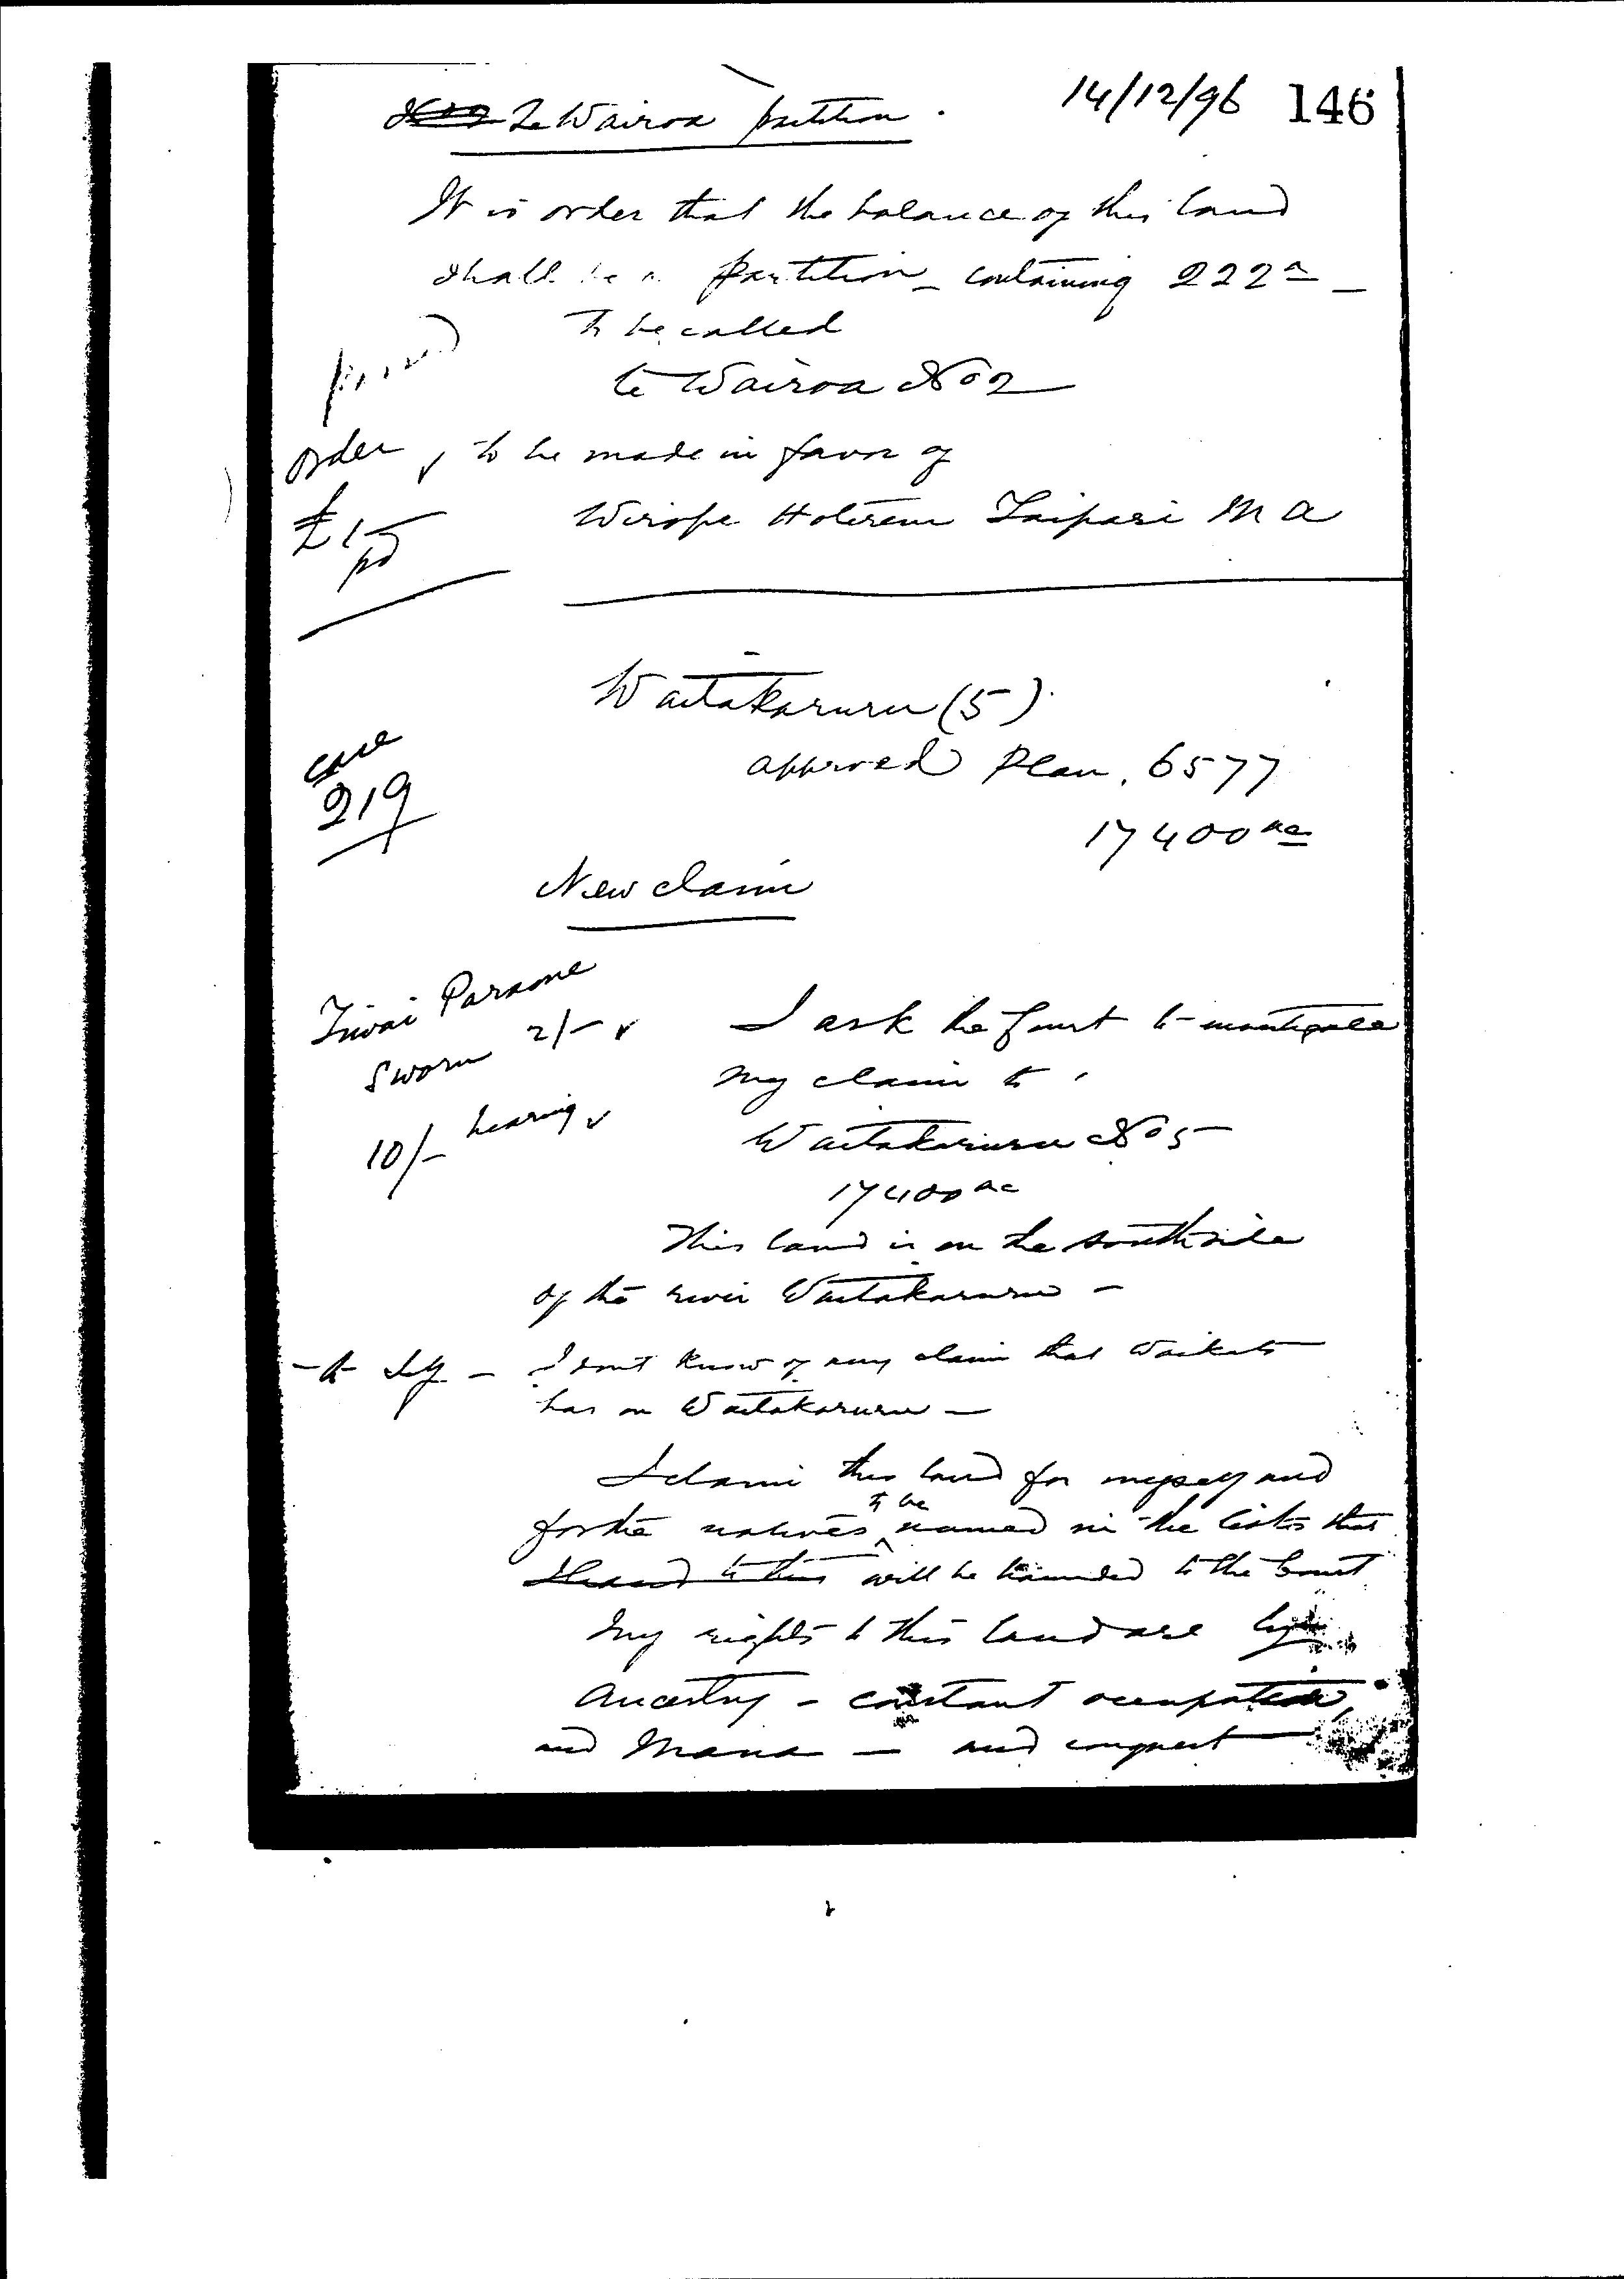 Te Wairoa partition. 14/12/96 146
It is order that the balance of this land
shall be a partition - containing 222a -
to be called
te Wairoa No 2
order to be made in favor of
£1 - pd
Wirope Hoterene Taipari M A
Waitakaruru (5)
case
219
approved Plan. 6577
17400 ac
New claim
Tiwai Paraone
sworn 2/-
10/- hearing
I ask the Court to investigate
my claim to
Waitakaruru No 5
17400 ac
This land is on the south side
of the river Waitakaruru -
I dont know of any claim that Waikato
has on Waitakaruru -
I claim this land for myself and
for the natives to be named in the lists that
will be handed to the Court
My rights to this land are by
Ancestry - constant occupation,
and Mana - and conquest